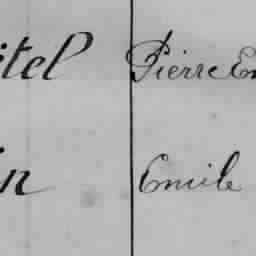 itel Pierre Em
in Emile